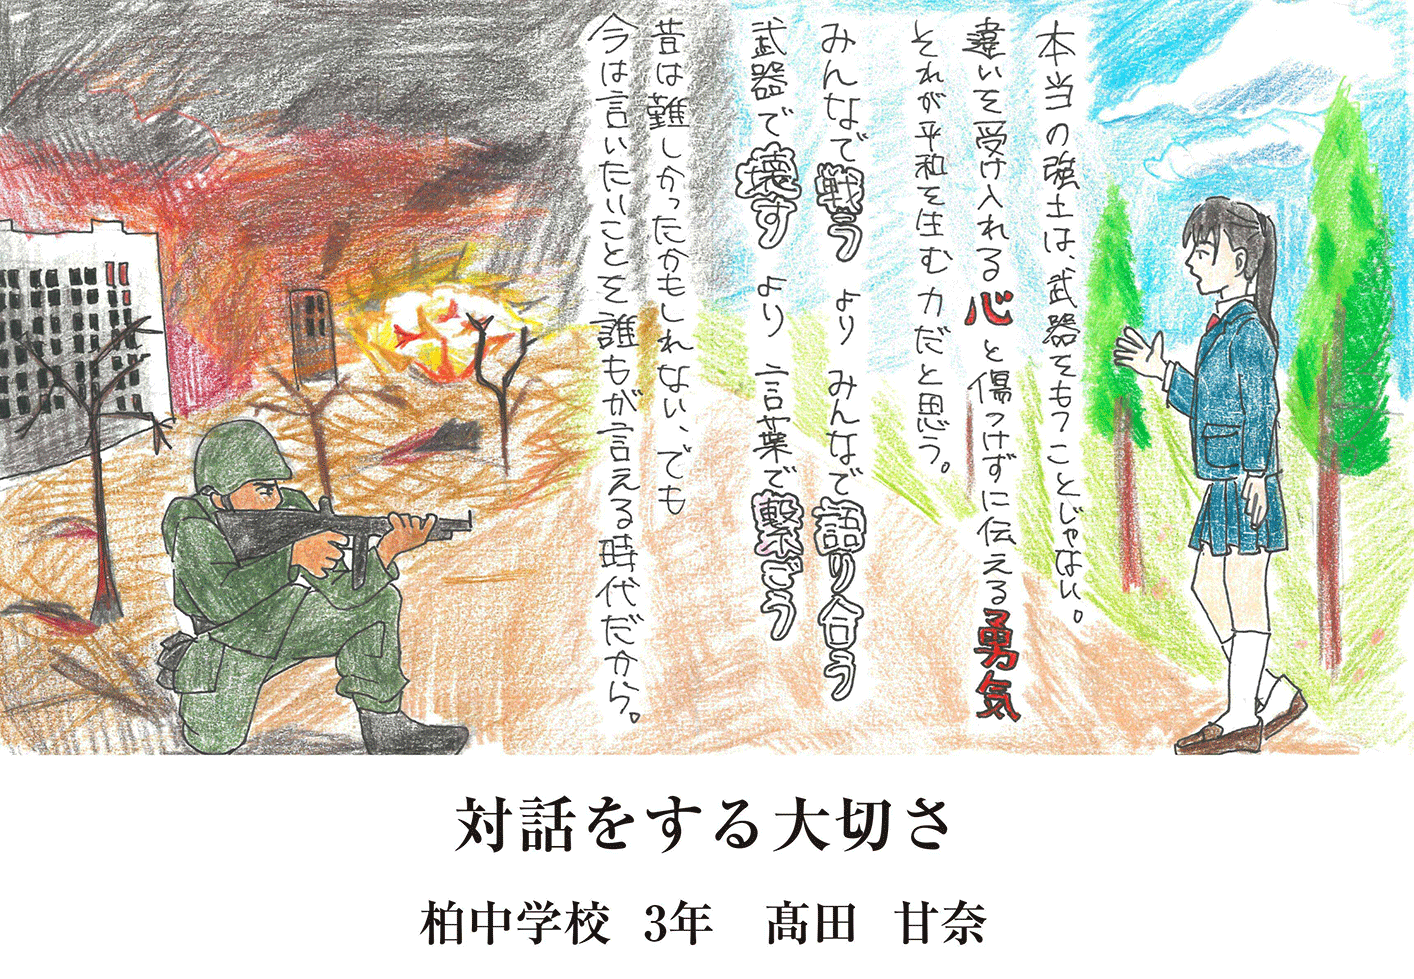 本当の強さは、武器をもつことじゃない。
違いを受け入れる心と傷つけずに伝える勇気
それが平和を生む力だと思う。
みんなで戦う より みんなで語り合う
武器で壊す より 言葉で繋ごう
昔は難しかったかもしれない、でも
今は言いたいことを誰もが言える時代だから。
対話をする大切さ
柏中学校 3年 髙田 甘奈